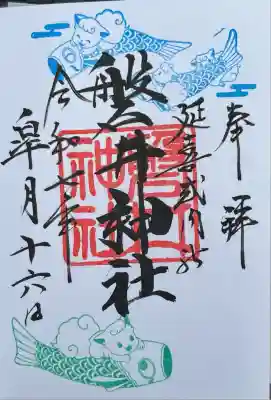 奉拝
延喜式内社
磐井神社
令和七年
皐月十六日
磐井神社